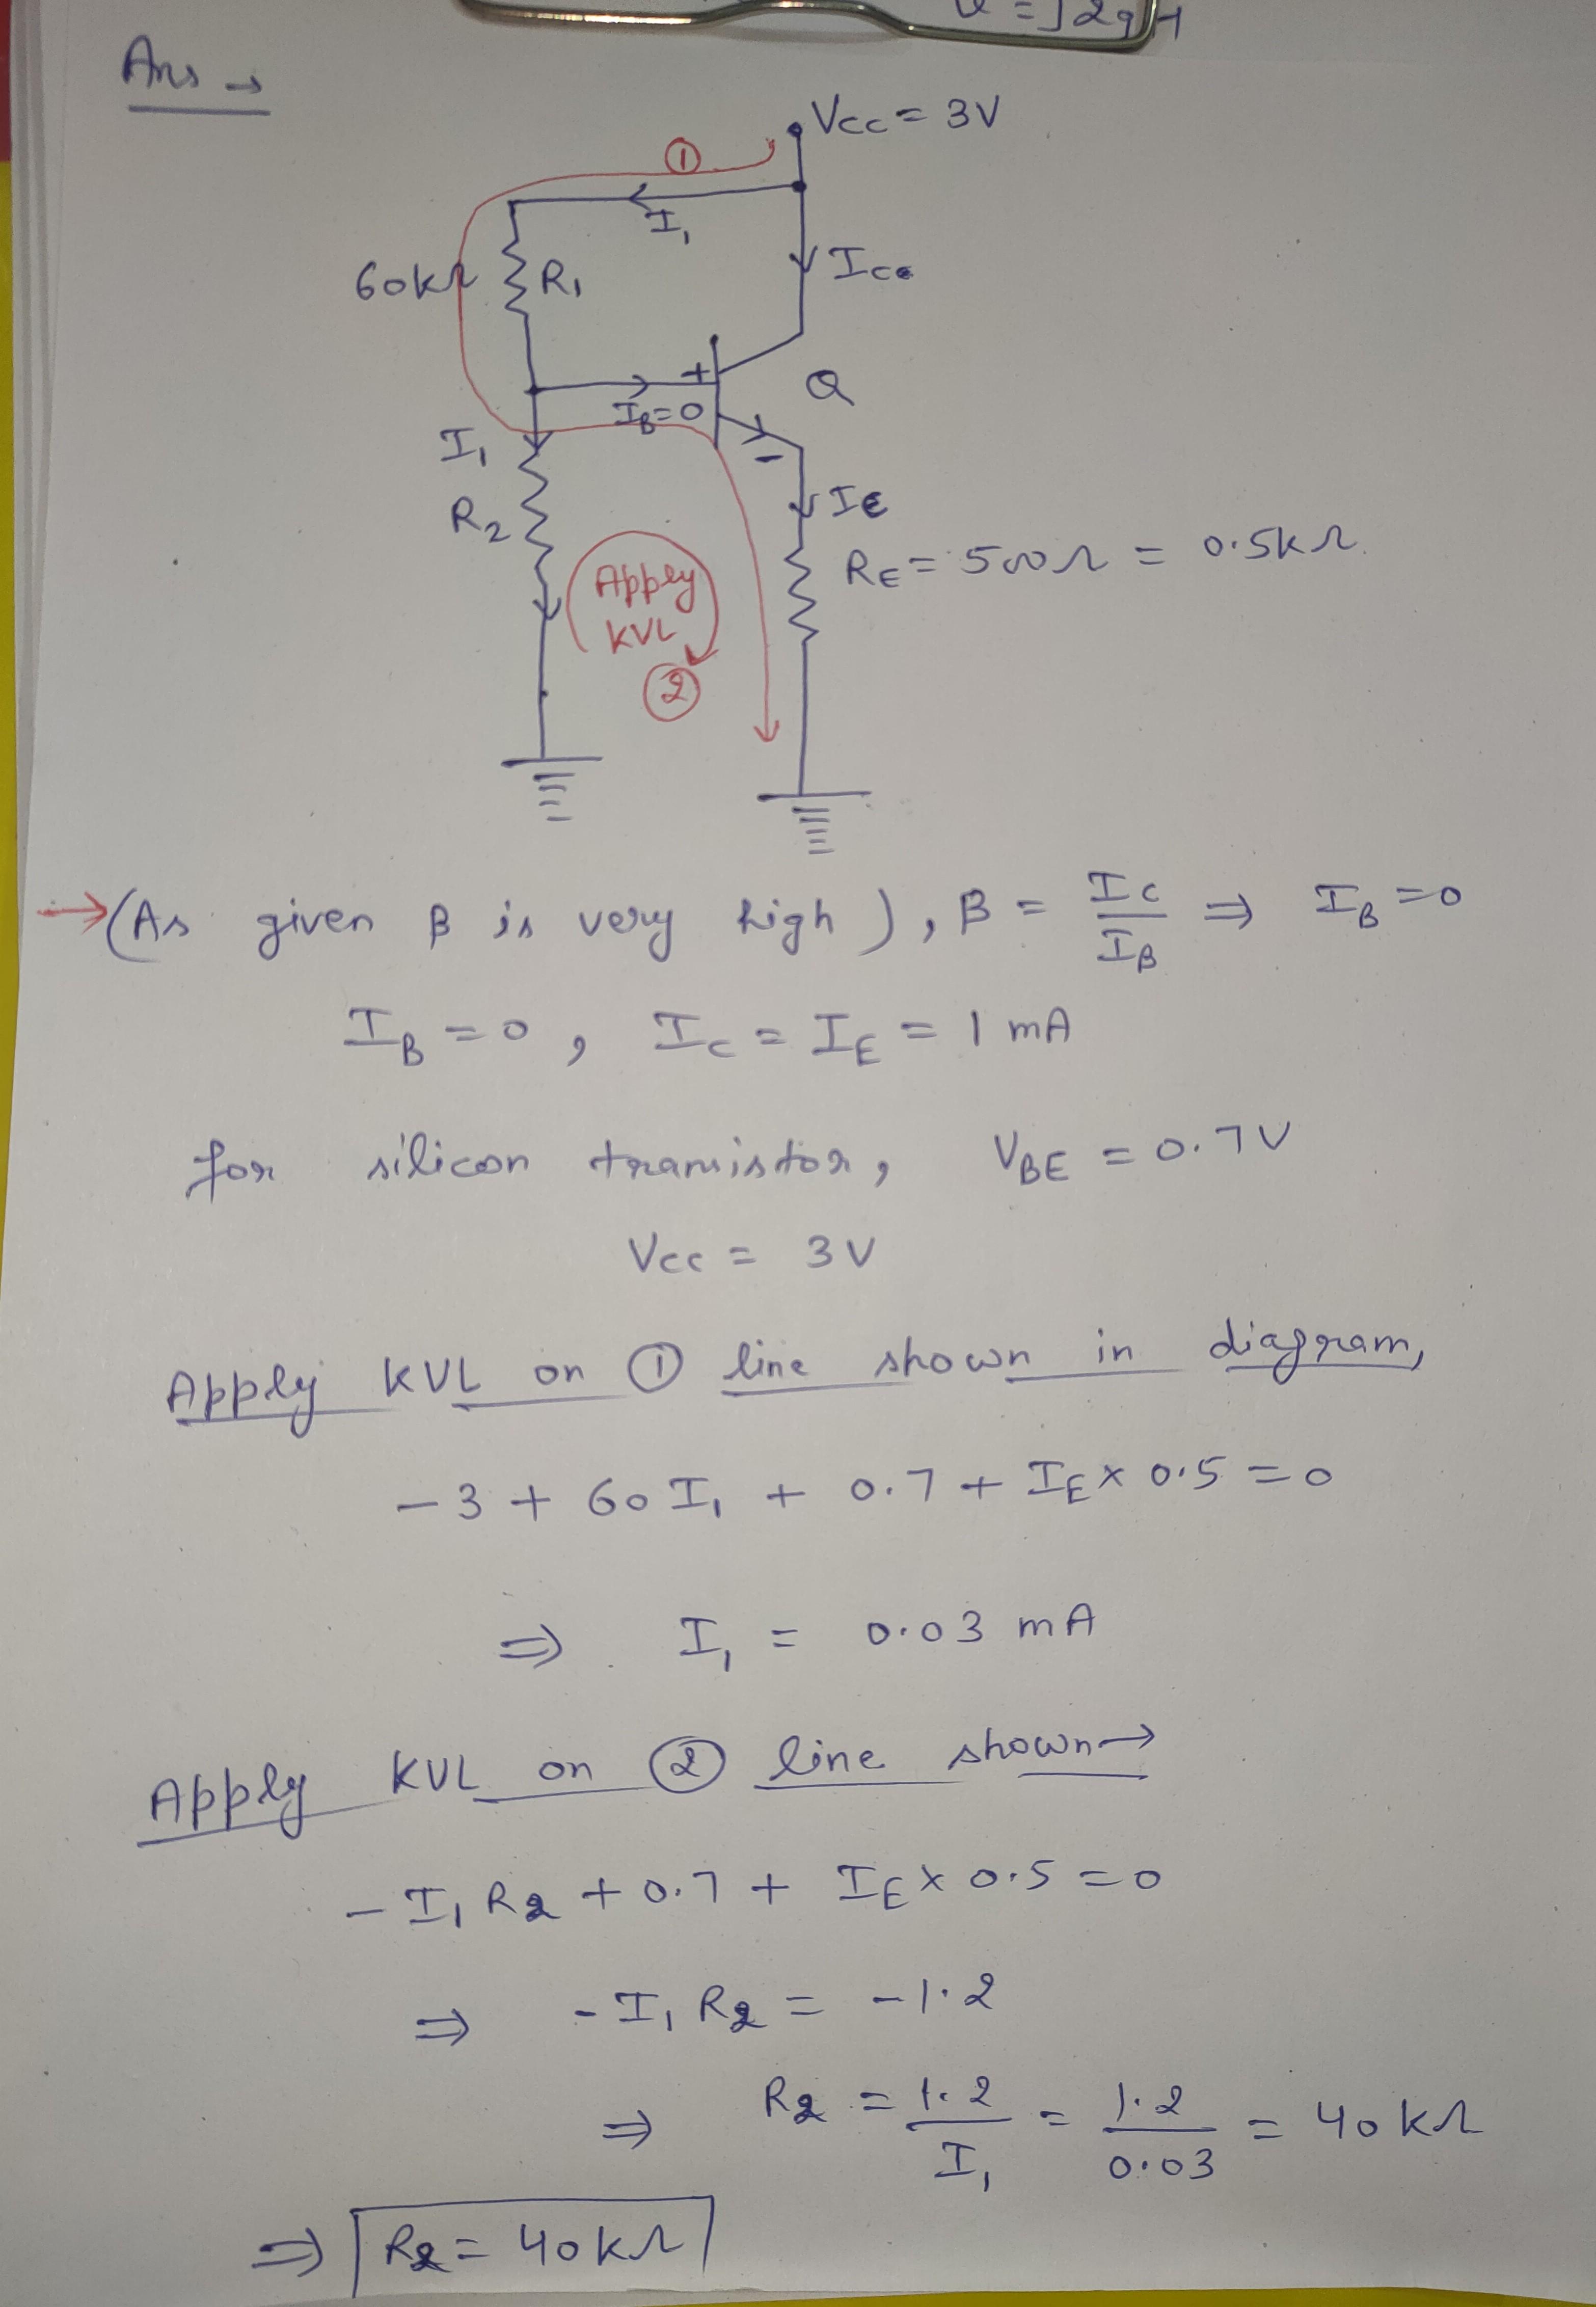 Ans →
Vcc = 3V
①
I₁
60kΩ
R₁
Ice
Q
+
IB=0
I₁
R₂
-
IE
RE = 500Ω = 0.5kΩ
Apply
KVL
②
→(As given β is very high), β = IC/IB ⇒ IB = 0
IB = 0, IC = IE = 1 mA
for silicon transistor, VBE = 0.7V
Vcc = 3V
Apply KVL on ① line shown in diagram,
-3 + 60 I₁ + 0.7 + IE × 0.5 = 0
⇒ I₁ = 0.03 mA
Apply KVL on ② line shown→
- I₁ R₂ + 0.7 + IE × 0.5 = 0
⇒ - I₁ R₂ = -1.2
⇒ R₂ = 1.2/I₁ = 1.2/0.03 = 40 kΩ
⇒ R₂ = 40 kΩ